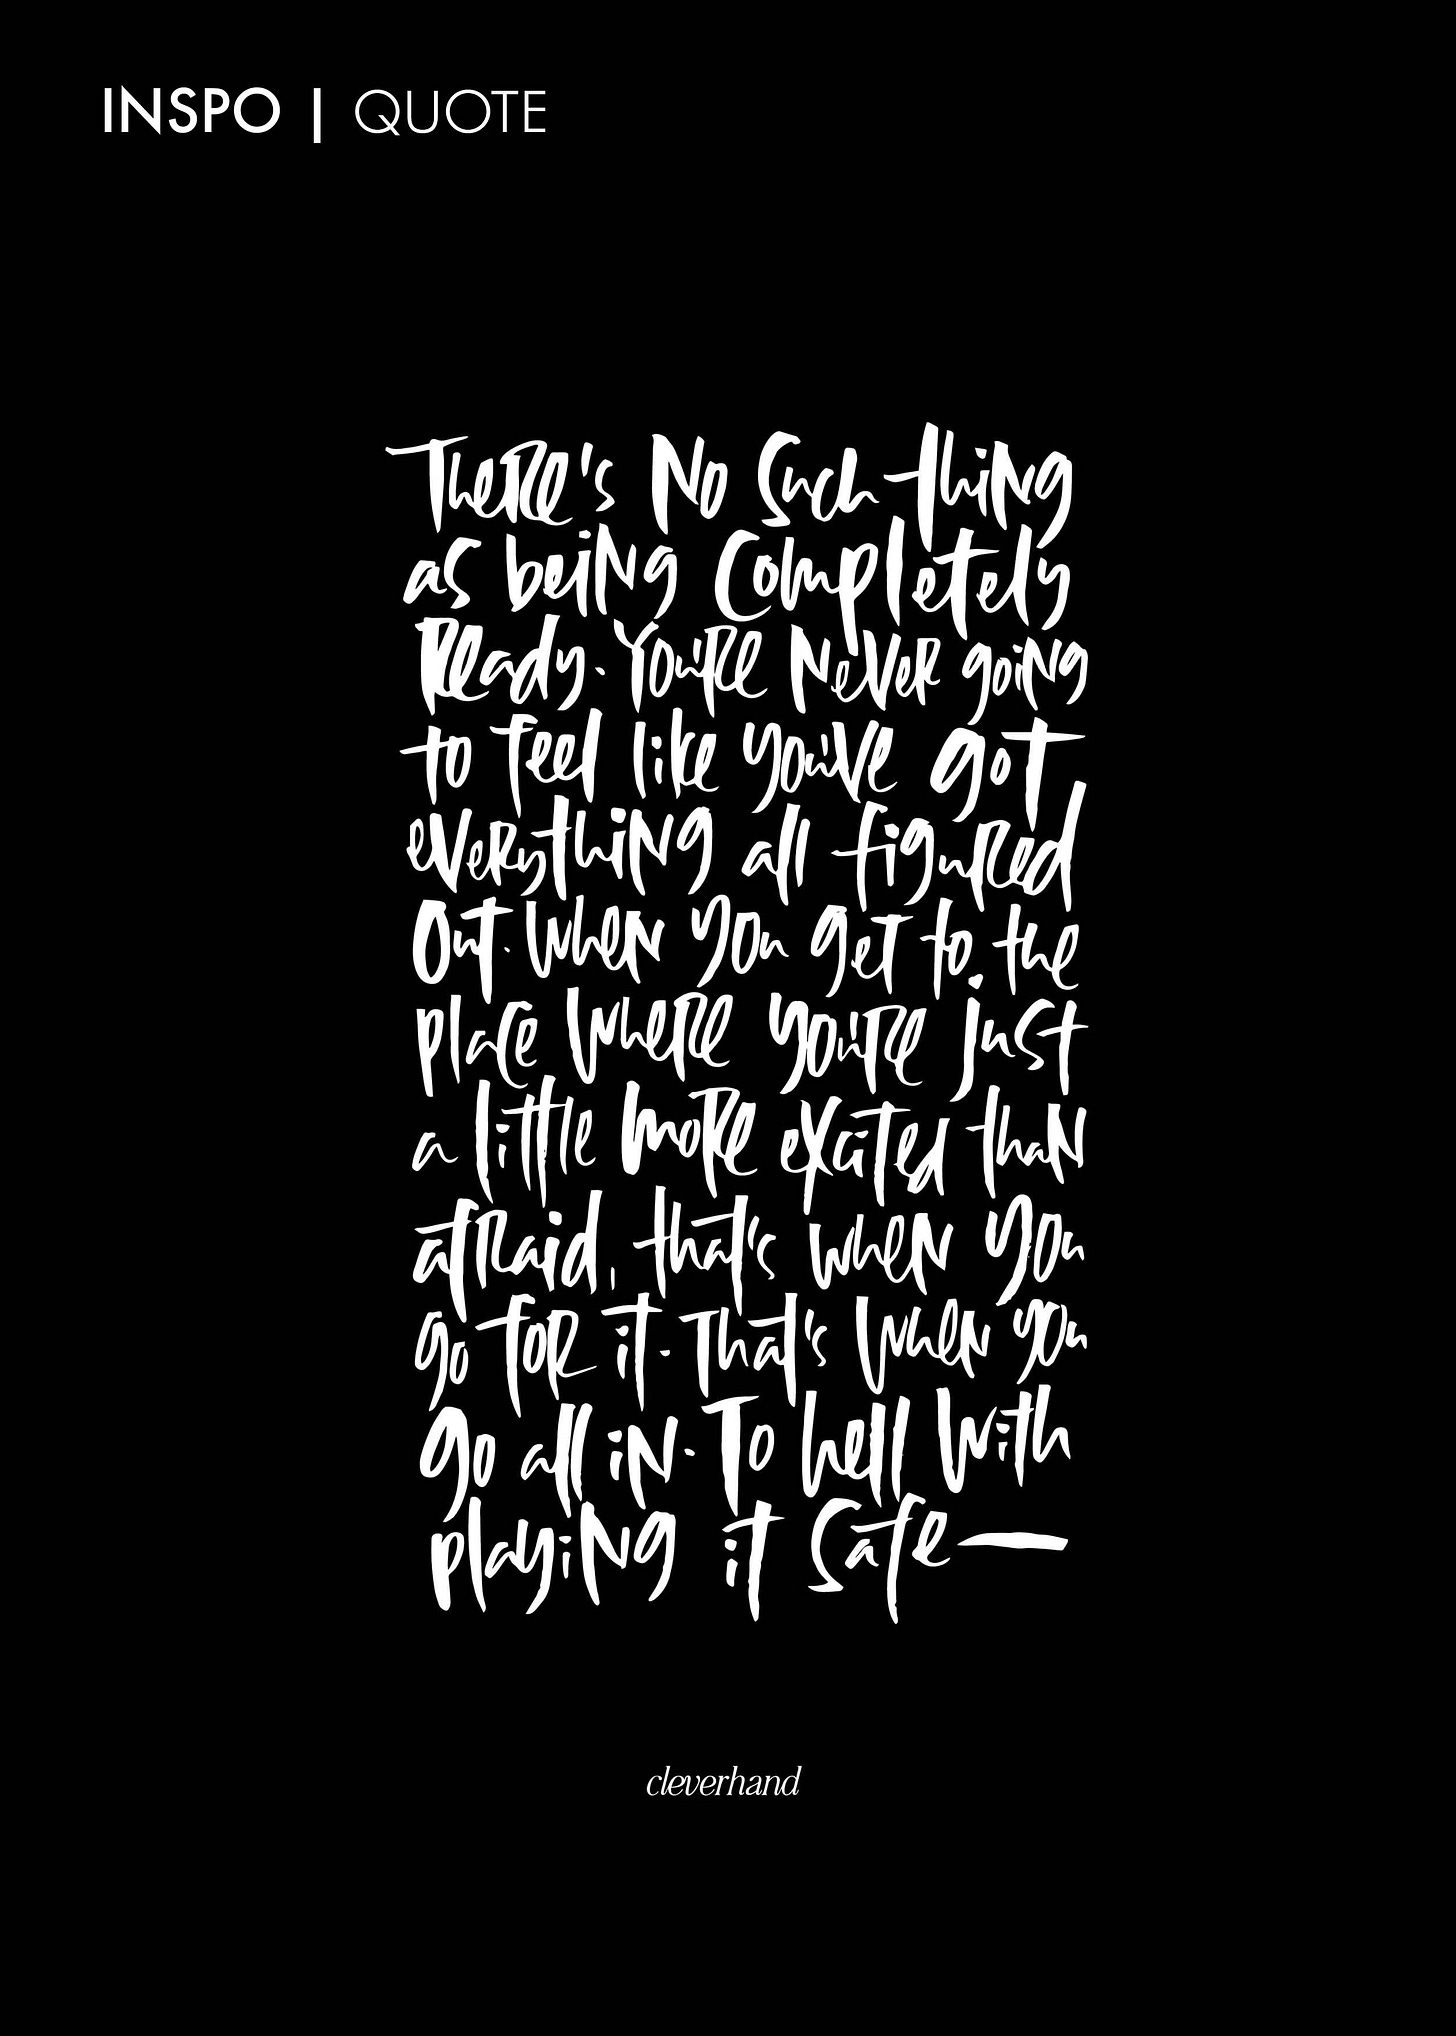 INSPO | QUOTE
There's No Such thing
as being Completely
Ready. You're Never going
to feel like you've got
everything all figured
Out. When you get to the
place where you're just
a little more excited than
afraid, that's when you
go for it. That's when you
go all in. To hell with
playing it safe—
cleverhand